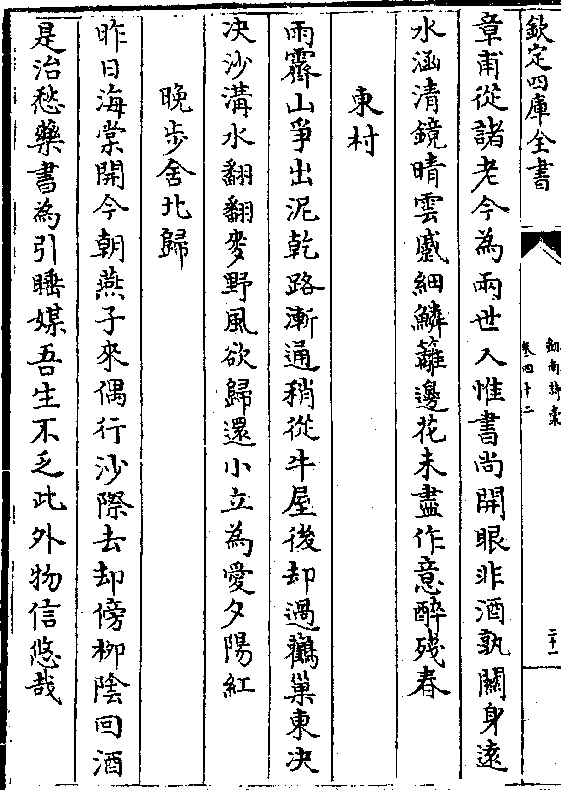 欽定四庫全書
劍南詩稾
卷四十二
二十二
章甫從諸老今為兩世人惟書尚開眼非酒孰關身遠
水涵清鏡晴雲蹙細鱗籬邊花未盡作意醉殘春
東村
雨霽山爭出泥乾路漸通稍從牛屋後却過鸛巢東決
决沙溝水翻翻麥野風欲歸還小立為愛夕陽紅
晚步舍北歸
昨日海棠開今朝燕子來偶行沙際去却傍柳陰回酒
是治愁藥書為引睡媒吾生不乏此外物信悠哉